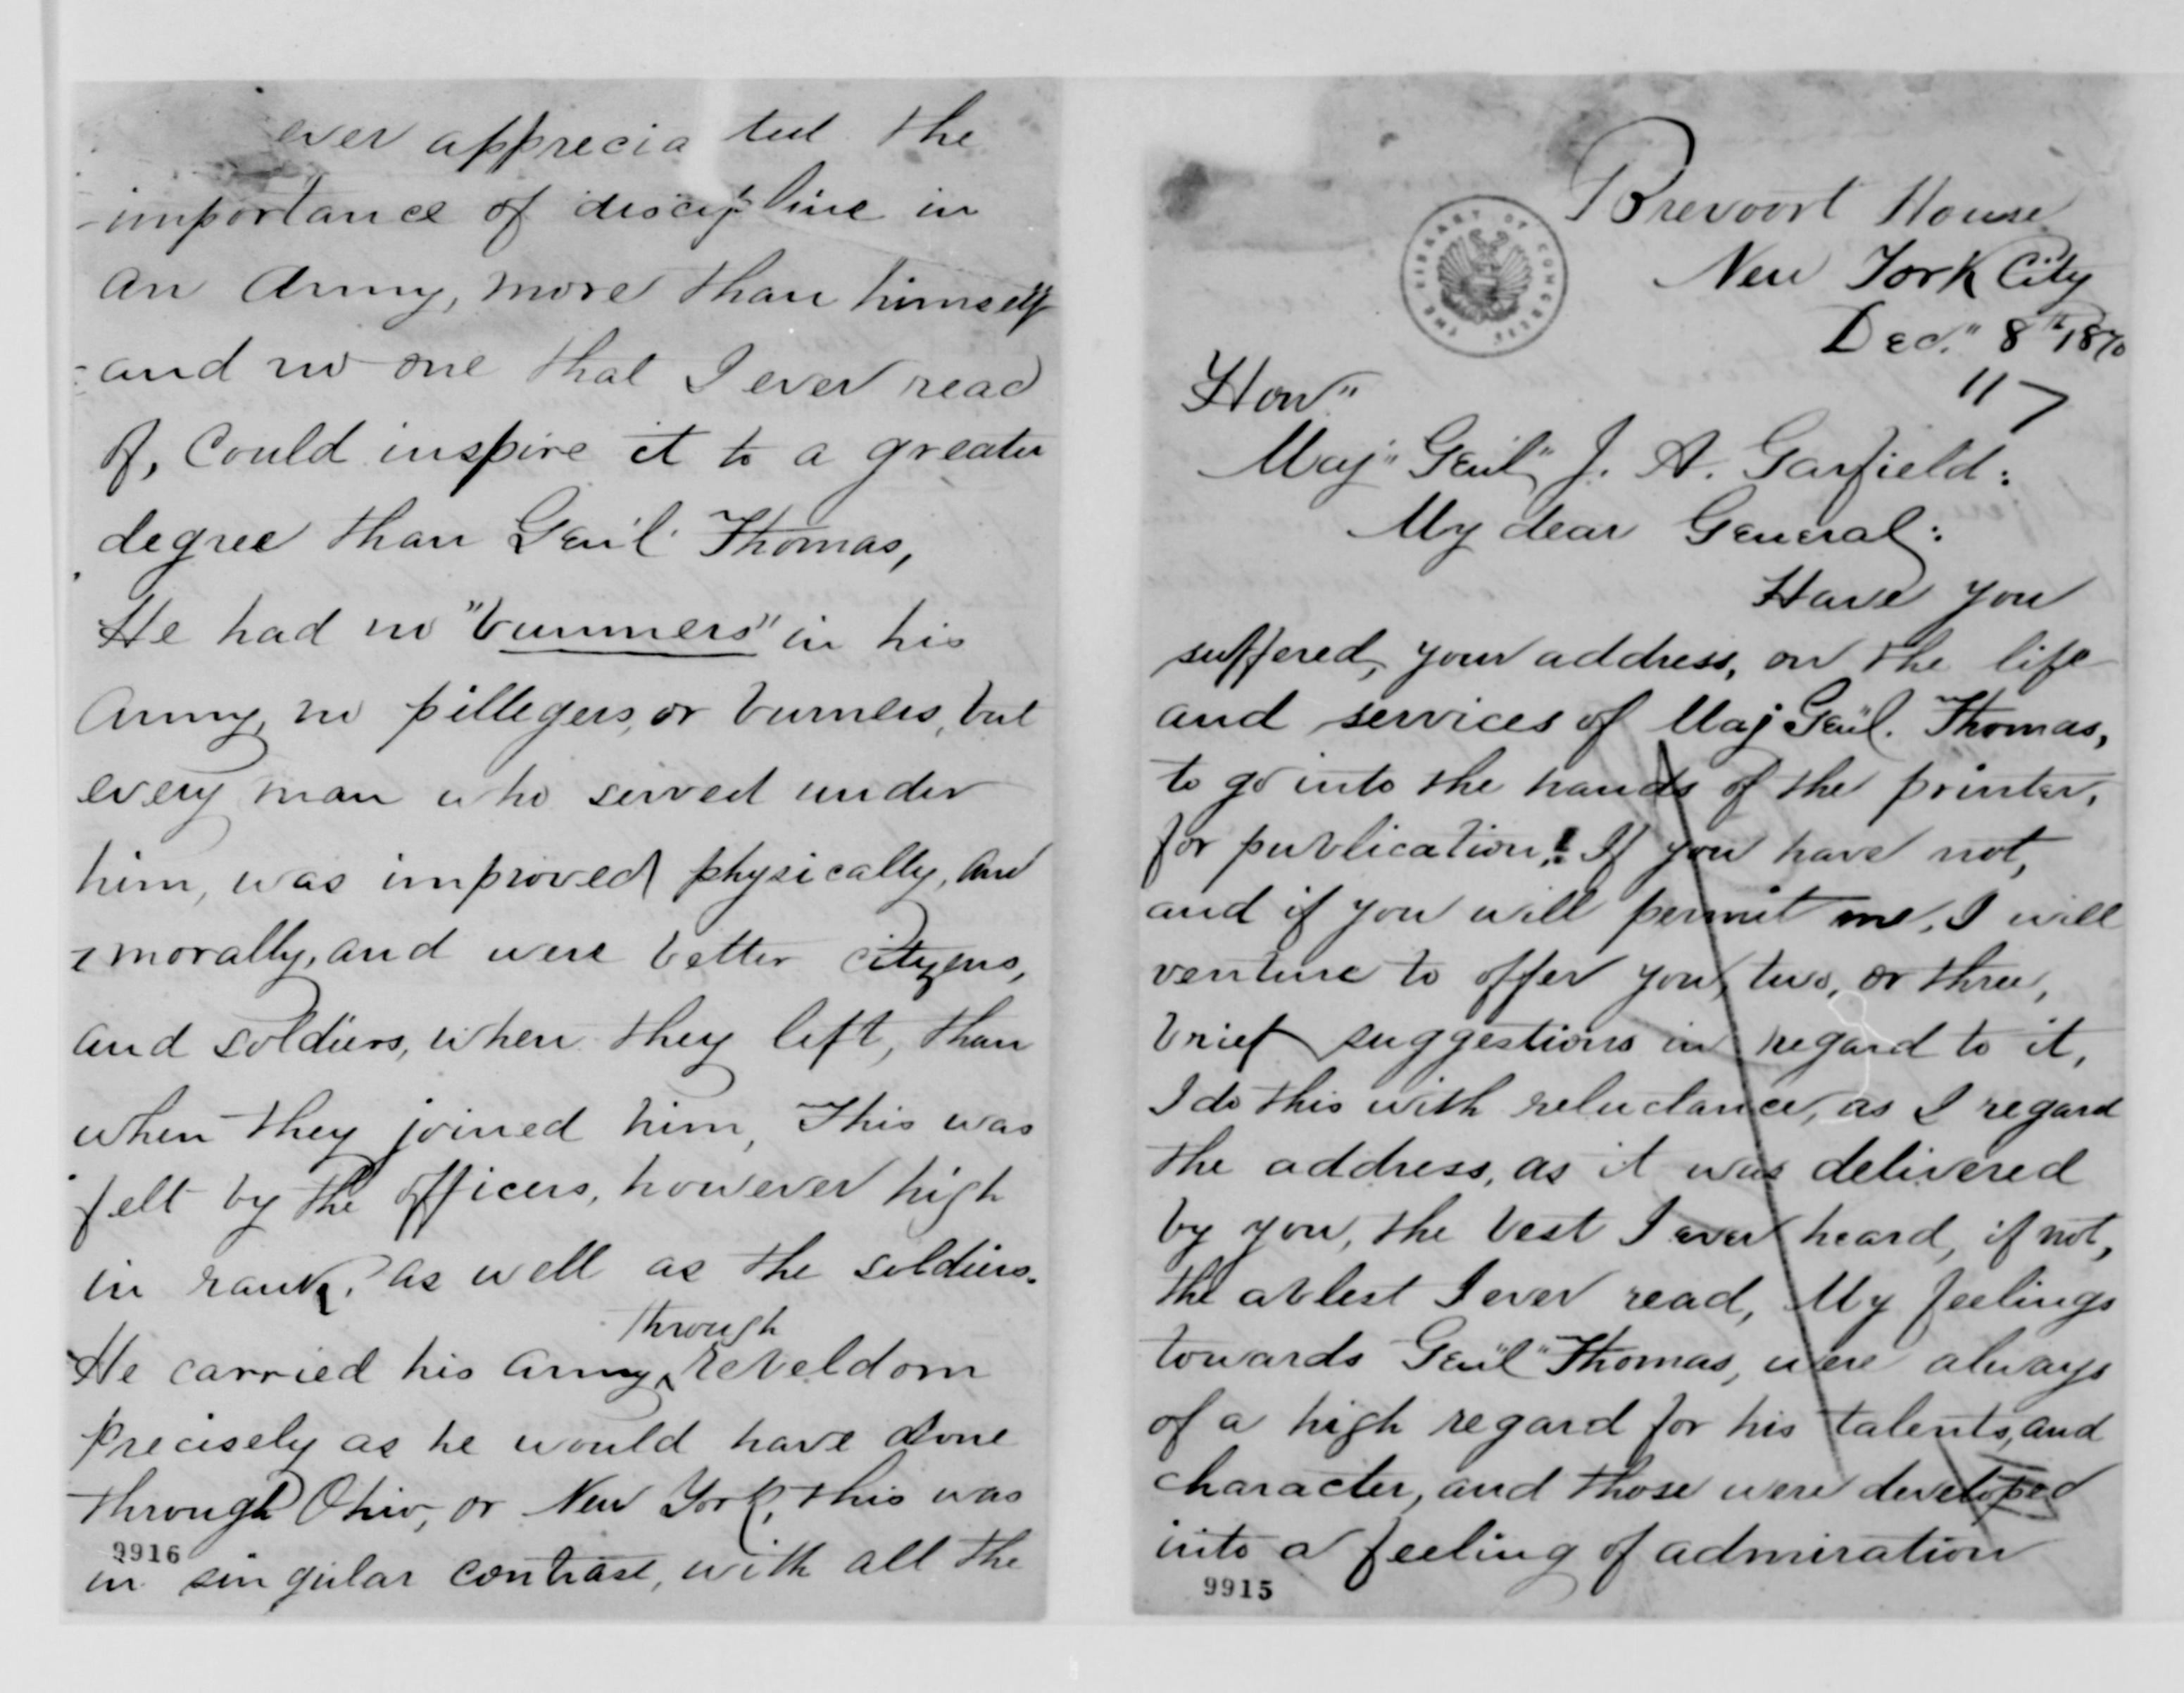 ever apprecia ted the
importance of discipline in
an Army, more than himself
and no one that I ever read
of, Could inspire it to a greater
degree than Gen'l Thomas,
He had no "bummers" in his
Army, no pillegers, or burners, but
every man who served under
him, was improved physically, and
morally, and were better cityzens,
and soldiers, when they left, than
when they joined him, This was
felt by the officers, however high
in rank, as well as the soldiers.
through
He carried his Army ‸ rebeldom
precisely as he would have done
through Ohio, or New York, this was
9916
in singular contrast, with all the
Brevoort House
New York City
THE LIBRARY OF CONGRESS
Dec." 8th 1870
Hon"
Maj" Gen'l" J. A. Garfield:
My dear General:
Have you
suffered, your address, on the life
and services of Maj Gen'l. Thomas,
to go into the hands of the printer,
for publication,! If you have not,
and if you will permit me, I will
venture to offer you, two, or three,
brief suggestions in regard to it,
I do this with reluctance, as I regard
the address, as it was delivered
by you, the best I ever heard, if not,
the ablest I ever read, My feelings
towards Gen'l" Thomas, were always
of a high regard for his talents, and
character, and those were developed
into a feeling of admiration
9915